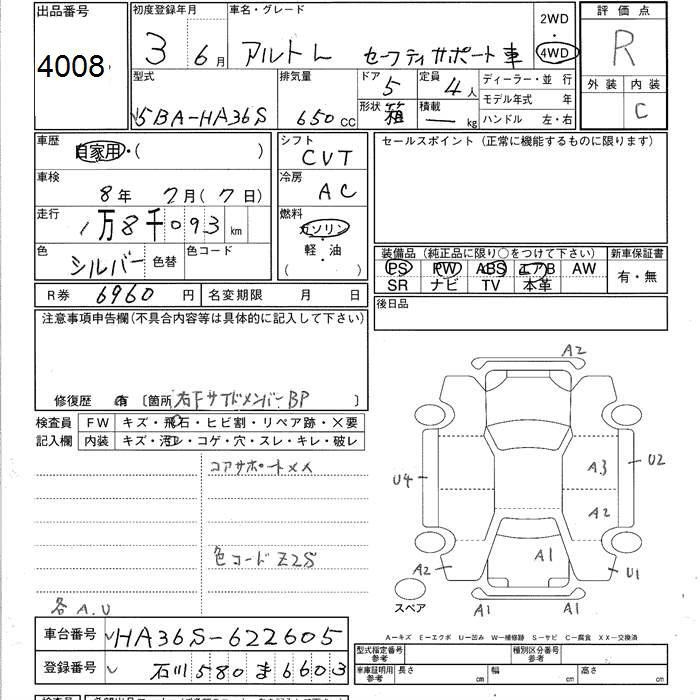 出品番号
4008
初度登録年月
3年 6月
車名・グレード
アルト L セーフティサポート車
2WD
・
4WD
評価点
R
外装 内装
C
型式
5BA-HA36S
排気量
650 CC
ドア
5
形状
箱
定員
4人
積載
― kg
ディーラー・並 行
モデル年式 年
ハンドル 左・右
車歴
自家用・( )
車検
8年 2月(7日)
走行
1万8千093 km
色
シルバー
色替
色コード
シフト
CVT
冷房
AC
燃料
ガソリン
・
軽・油
( )
セールスポイント(正常に機能するものに限ります)
装備品(純正品に限り○をつけて下さい)
PS PW ABS エアB AW
SR ナビ TV 本革
新車保証書
有・無
R券 6960 円
名変期限 月 日
後日品
注意事項申告欄(不具合内容等は具体的に記入して下さい)
修復歴 有 〔箇所 右Fサイドメンバー BP
検査員
記入欄
FW キズ・飛石・ヒビ割・リペア跡・×要
内装 キズ・汚コ・コゲ・穴・スレ・キレ・破レ
コアサポートメス
色コード Z2S
各A.U
A2
U4
A3
U2
A2
A1
A2
U1
A1
A1
スペア
車台番号 HA36S-622605
登録番号 石川 580 ま 6603
A―キズ E―エクボ U―凹み W―補修跡 S―サビ C―腐食 XX―交換済
型式指定番号
参考
種別区分番号
参考
車庫証明用
参考
長さ cm
幅 cm
高さ cm